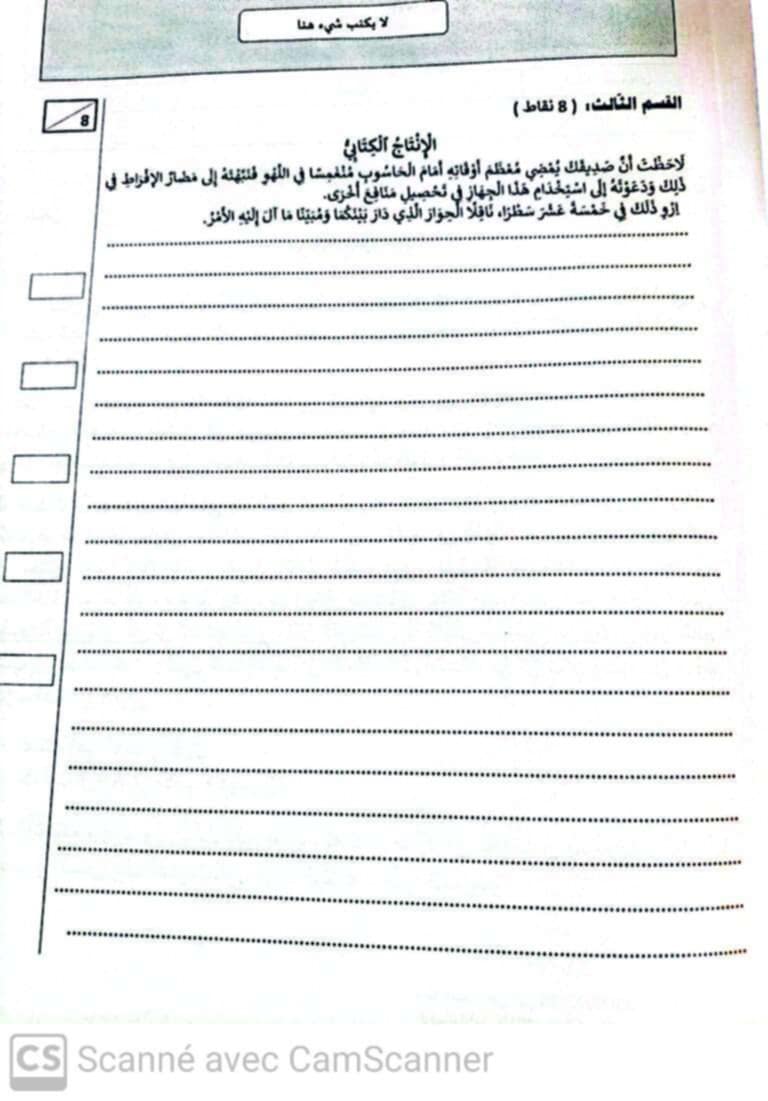 لا يكتب شيء هنا
القسم الثّالث: ( 8 نقاط )
8
الْإِنْتَاجُ الْكِتَابِيُّ
لَاحَظْتَ أَنَّ صَدِيقَكَ يُمْضِي مُعْظَمَ أَوْقَاتِهِ أَمَامَ الْحَاسُوبِ مُنْغَمِسًا فِي اللَّهْوِ فَنَبَّهْتَهُ إِلَى مَضَارِّ الإِفْرَاطِ فِي
ذَلِكَ وَدَعَوْتَهُ إِلَى اسْتِخْدَامِ هَذَا الْجِهَازِ فِي تَحْصِيلِ مَنَافِعَ أُخْرَى.
اِرْوِ ذَلكَ فِي خَمْسَةَ عَشَرَ سَطْرًا، نَاقِلًا الْحِوَارَ الَّذِي دَارَ بَيْنَكُمَا وَمُبَيِّنًا مَا آلَ إِلَيْهِ الأَمْرُ.
CS Scanné avec CamScanner